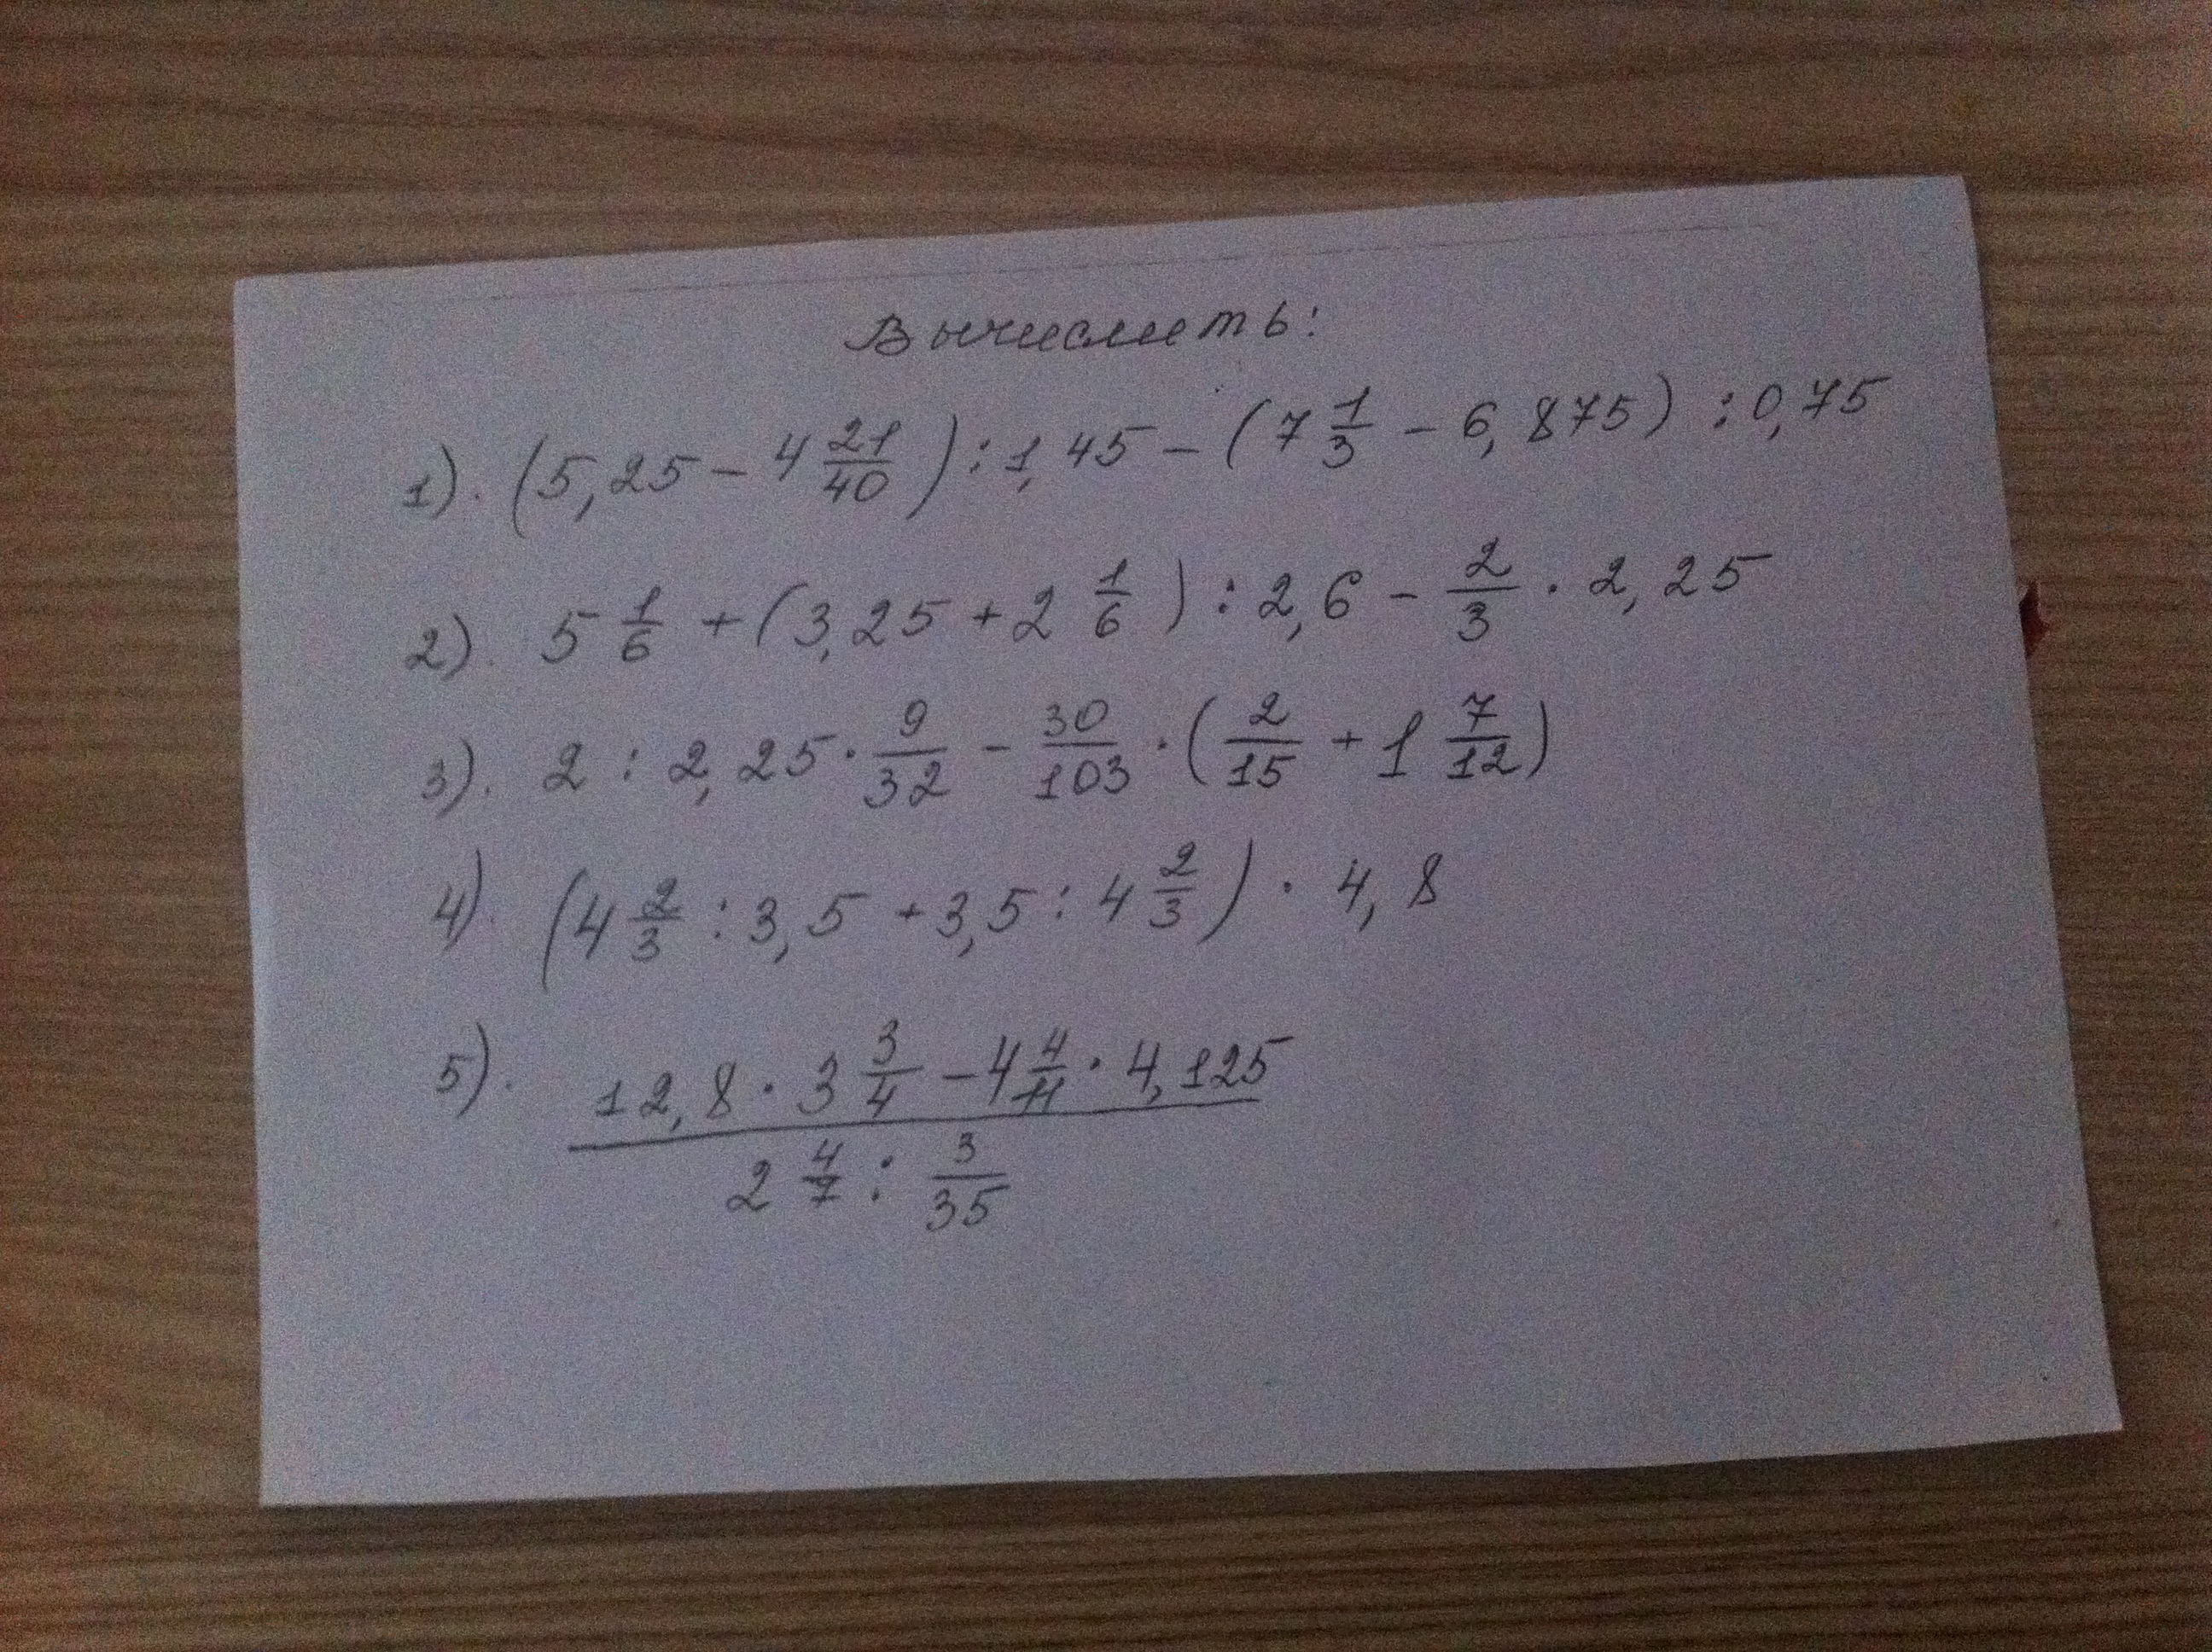 Вычислить:
1). (5,25 - 4 21/40) : 1,45 - (7 1/3 - 6,875) : 0,75
2). 5 1/6 + (3,25 + 2 1/6) : 2,6 - 2/3 · 2,25
3). 2 : 2,25 · 9/32 - 30/103 · (2/15 + 1 7/12)
4). (4 2/3 : 3,5 + 3,5 : 4 2/3) · 4,8
5). (12,8 · 3 3/4 - 4 4/11 · 4,125) / (2 4/7 : 3/35)